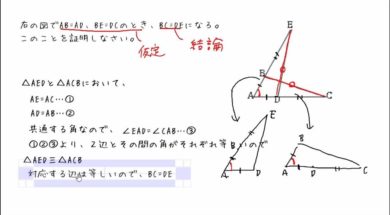 右の図でAB=AD、BE=DCのとき、BC=DEになる。
このことを証明しなさい。
仮定
結論
△AEDと△ACBにおいて、
AE=AC…①
AD=AB…②
共通する角なので、∠EAD=∠CAB…③
①②③より、2辺とその間の角がそれぞれ等しいので
△AED≡△ACB
対応する辺は等しいので、BC=DE
E
B
A
D
C
E
A
D
B
A
D
C